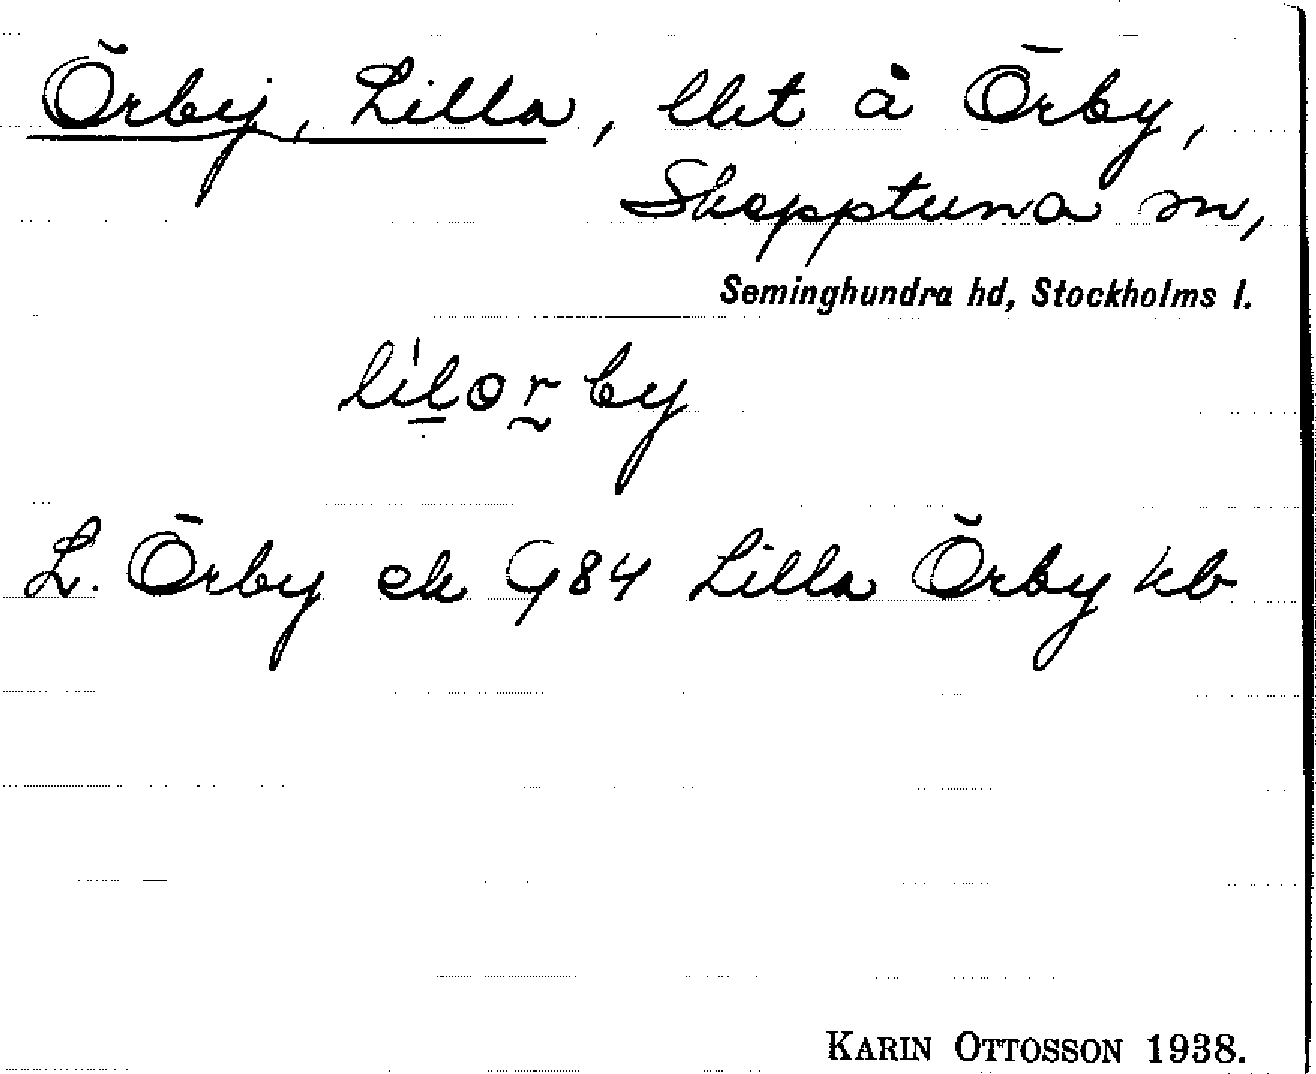 Örby, Lilla, lht å Örby,
Skepptuna sn,
Seminghundra hd, Stockholms l.
li̍lorby
L. Örby ek G84 Lilla Örby kb
KARIN OTTOSSON 1938.